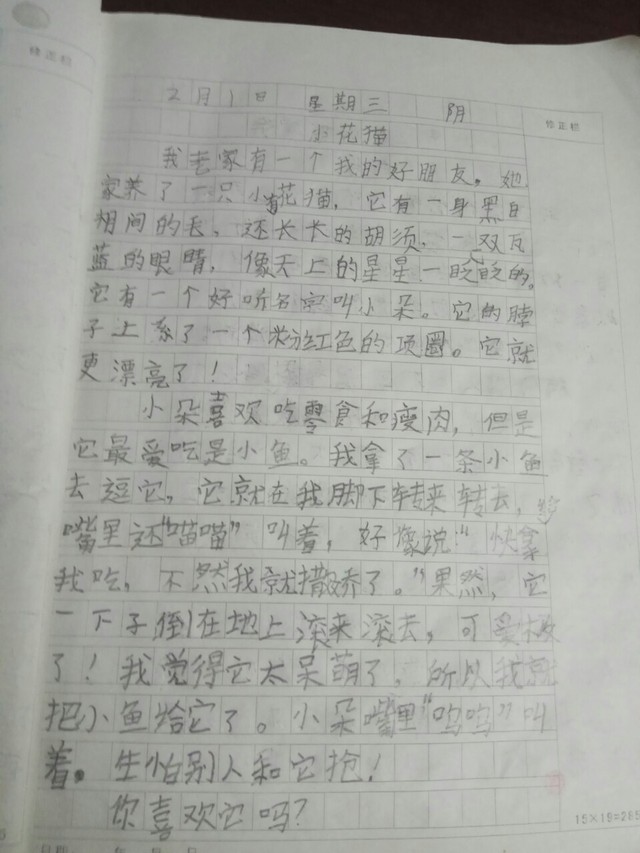 修正栏
修正栏
2月1日 星期三 阴
小花猫
我老家有一个我的好朋友。她
家养了一只小花猫，它有一身黑白
相间的毛，还长长的胡须，一双瓦
蓝的眼睛，像天上的星星一眨一眨的。
它有一个好听名字叫小朵。它的脖
子上系了一个粉红色的项圈。它就
更漂亮了！
小朵喜欢吃零食和瘦肉，但是
它最爱吃是小鱼。我拿了一条小鱼
去逗它，它就在我脚下转来转去，
嘴里还“喵喵”叫着，好像说：“快拿给
我吃，不然我就撒娇了。”果然，它
一下子倒在地上滚来滚去，可爱极
了！我觉得它太呆萌了，所以我就
把小鱼给它了。小朵嘴里“呜呜”叫
着。生怕别人和它抢！
你喜欢它吗？
15×19=285